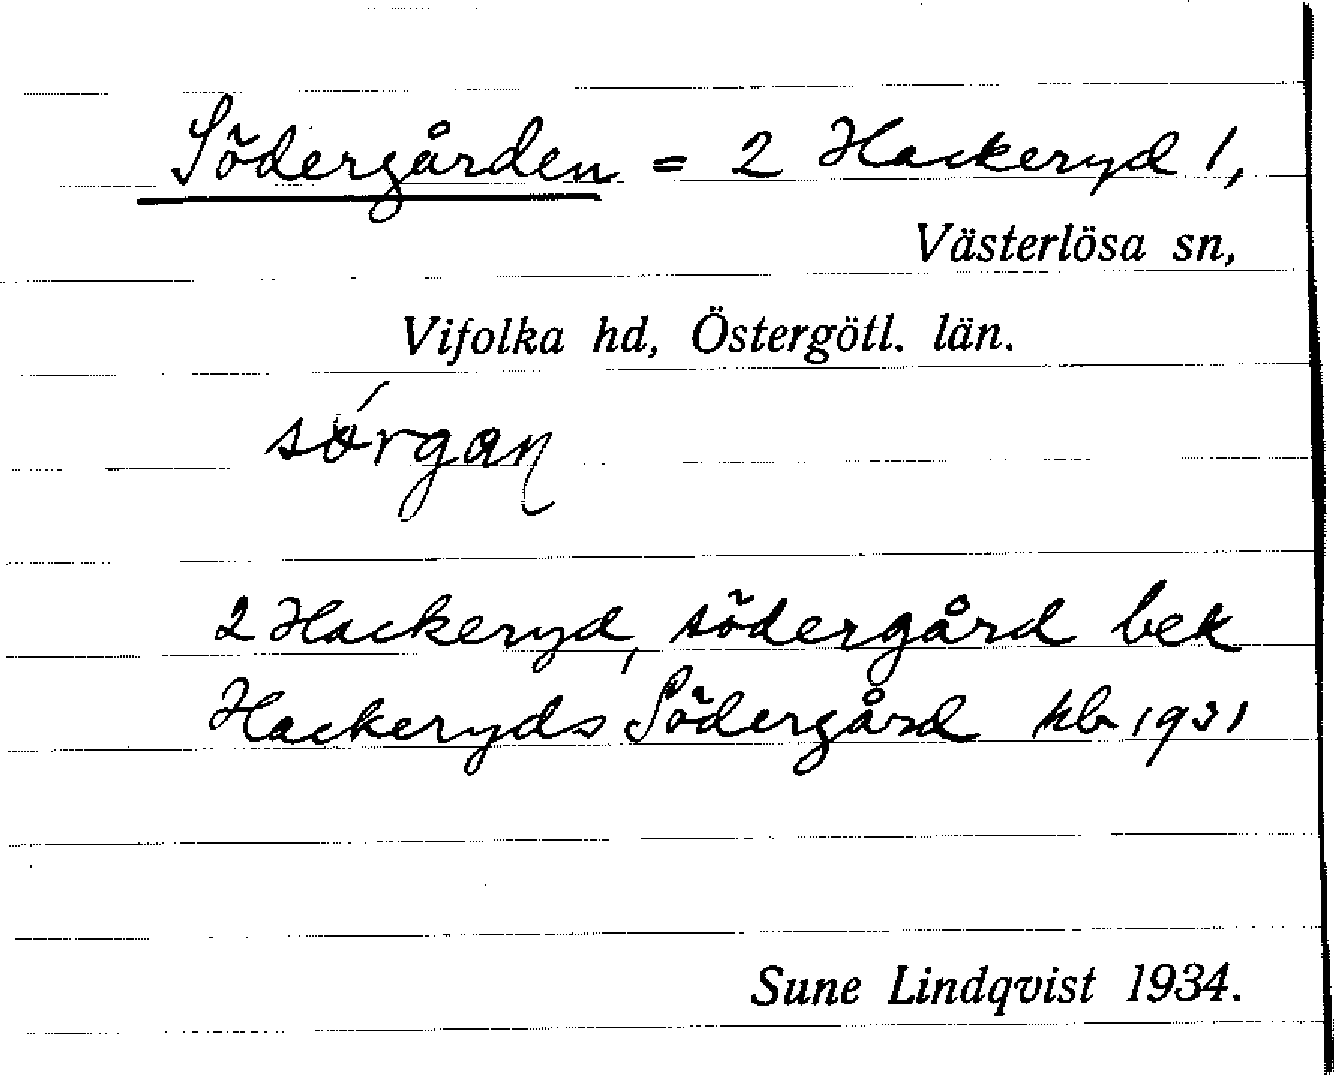 Södergården = 2 Hackeryd 1,
Västerlösa sn,
Vifolka hd, Östergötl. län.
sórgaꞃ
2 Hackeryd, södergård bek
Hackeryds Södergård hb 1931
Sune Lindqvist 1934.